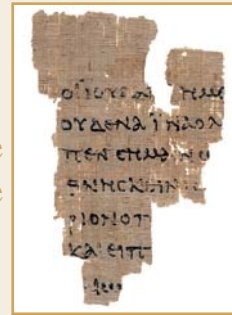 ΟΙ ΙΟΥΔΑΙ ΗΜΕ
ΟΥΔΕΝΑ ΪΝΑ ΟΛ
ΠΕΝ CΗΜΑΙΝΩ
ΘΝΗCΚΕΙΝ ΙC
ΡΙΟΝ ΟΠ
ΚΑΙ ΕΙΠ